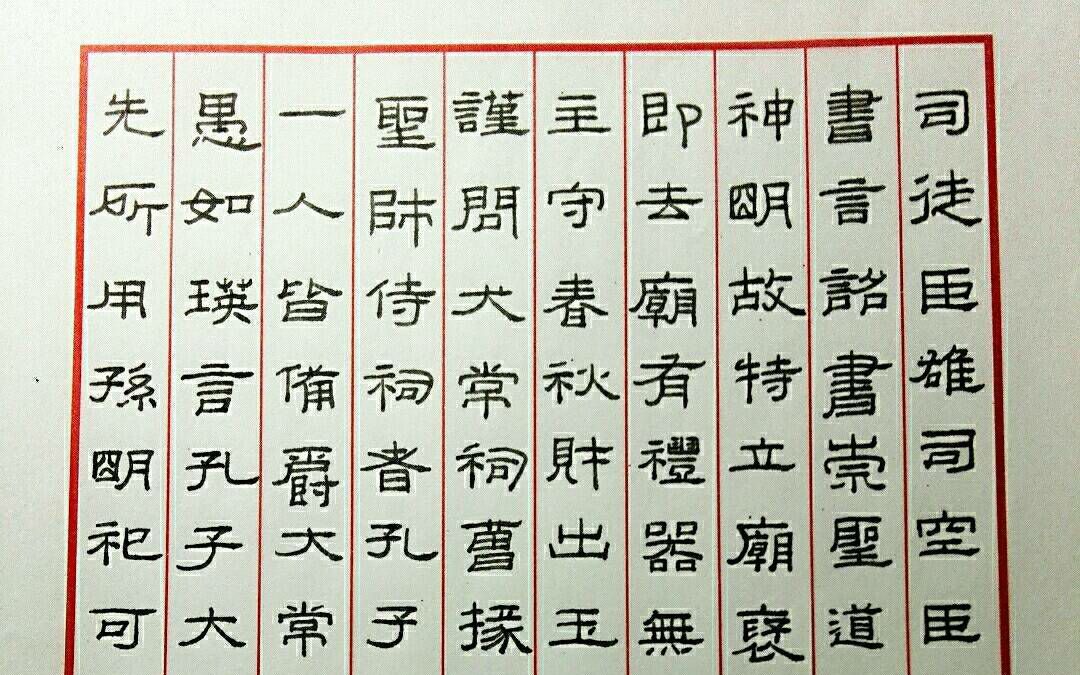 司徒臣雄司空臣
書言詔書崇聖道
神明故特立廟褒
即去廟有禮器無
主守春秋財出王
謹問大常祠曹掾
聖師侍祠者孔子
一人皆備爵大常
愚如瑛言孔子大
先所用孫明祀可